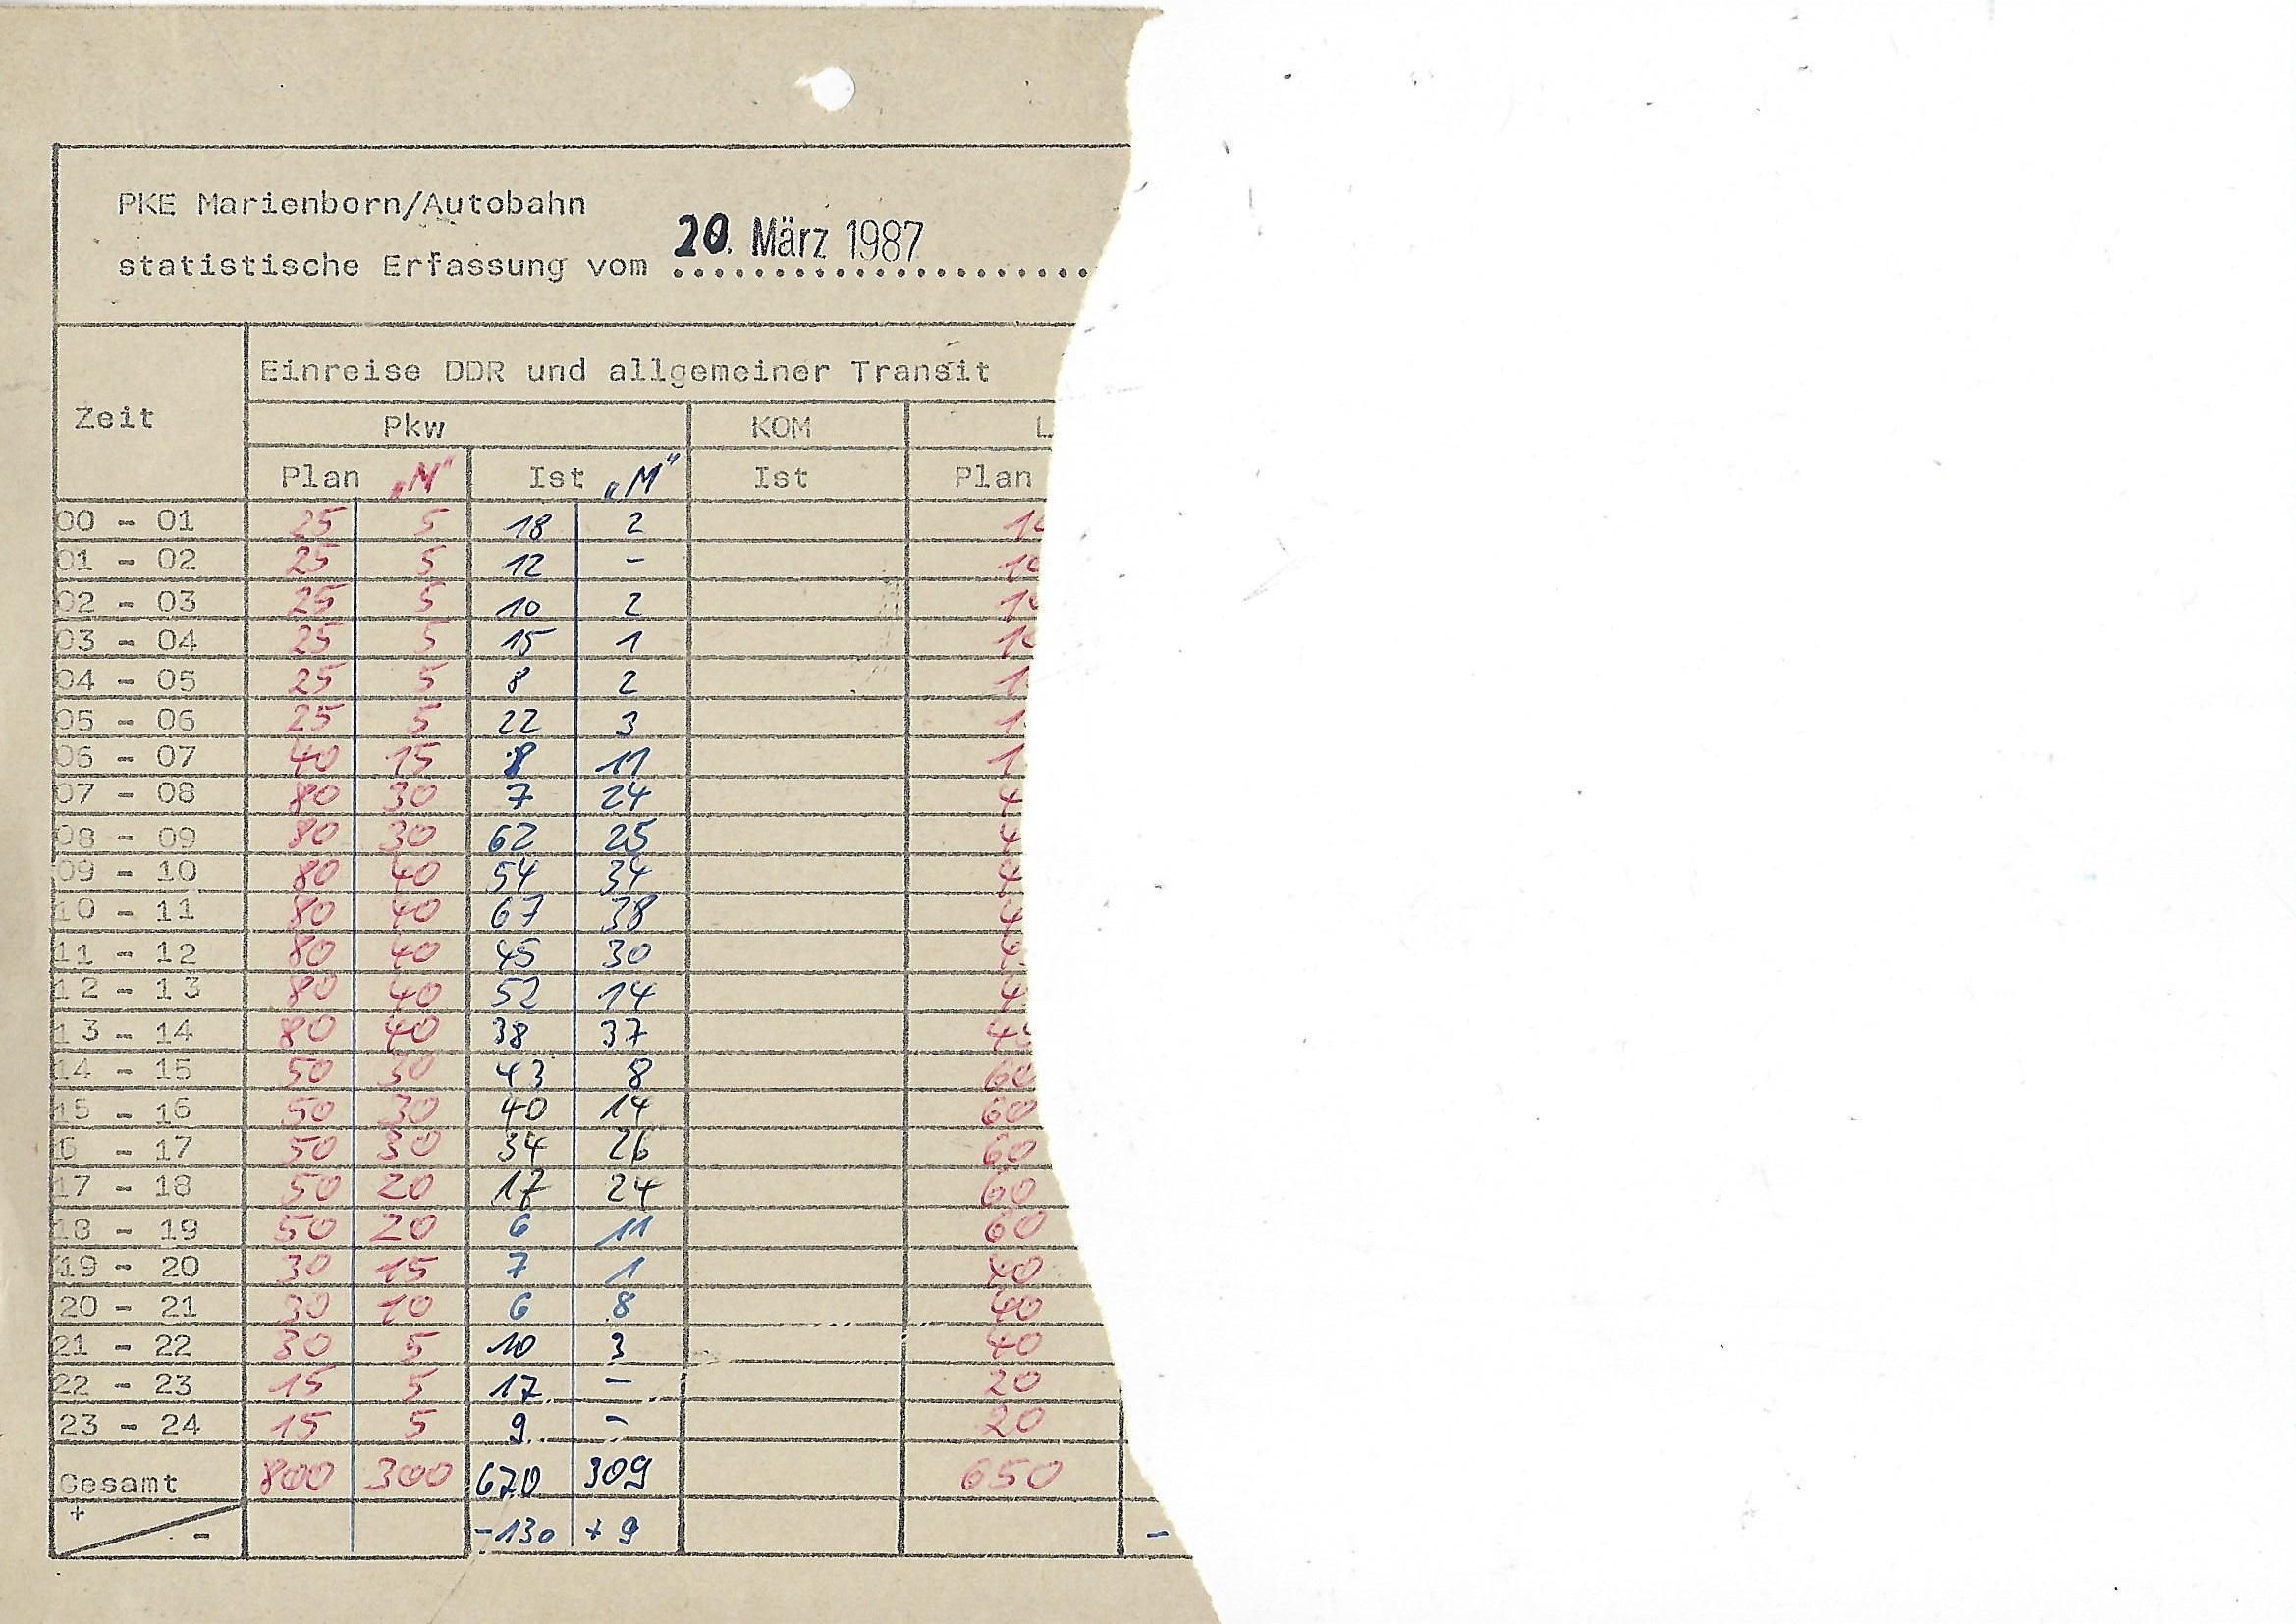 PKE Marienborn/Autobahn
statistische Erfassung vom 20. März 1987
Einreise DDR und allgemeiner Transit
Zeit
Pkw KOM L
Plan „M" Ist „M" Ist Plan
00 - 01 25 5 18 2
01 - 02 25 5 12 -
02 - 03 25 5 10 2
03 - 04 25 5 15 1
04 - 05 25 5 8 2
05 - 06 25 5 22 3
06 - 07 40 15 8 11
07 - 08 80 30 7 24
08 - 09 80 30 62 25
09 - 10 80 40 54 34
10 - 11 80 40 67 38
11 - 12 80 40 45 30
12 - 13 80 40 52 14
13 - 14 80 40 38 37
14 - 15 50 30 43 8 60
15 - 16 50 30 40 14 60
6 - 17 50 30 34 26 60
17 - 18 50 20 17 24 60
18 - 19 50 20 6 11 60
19 - 20 30 15 7 1 40
20 - 21 30 10 6 8 40
21 - 22 30 5 10 3 40
22 - 23 15 5 17 - 20
23 - 24 15 5 9 - 20
Gesamt 800 300 670 309 650
+ - -130 + 9 -